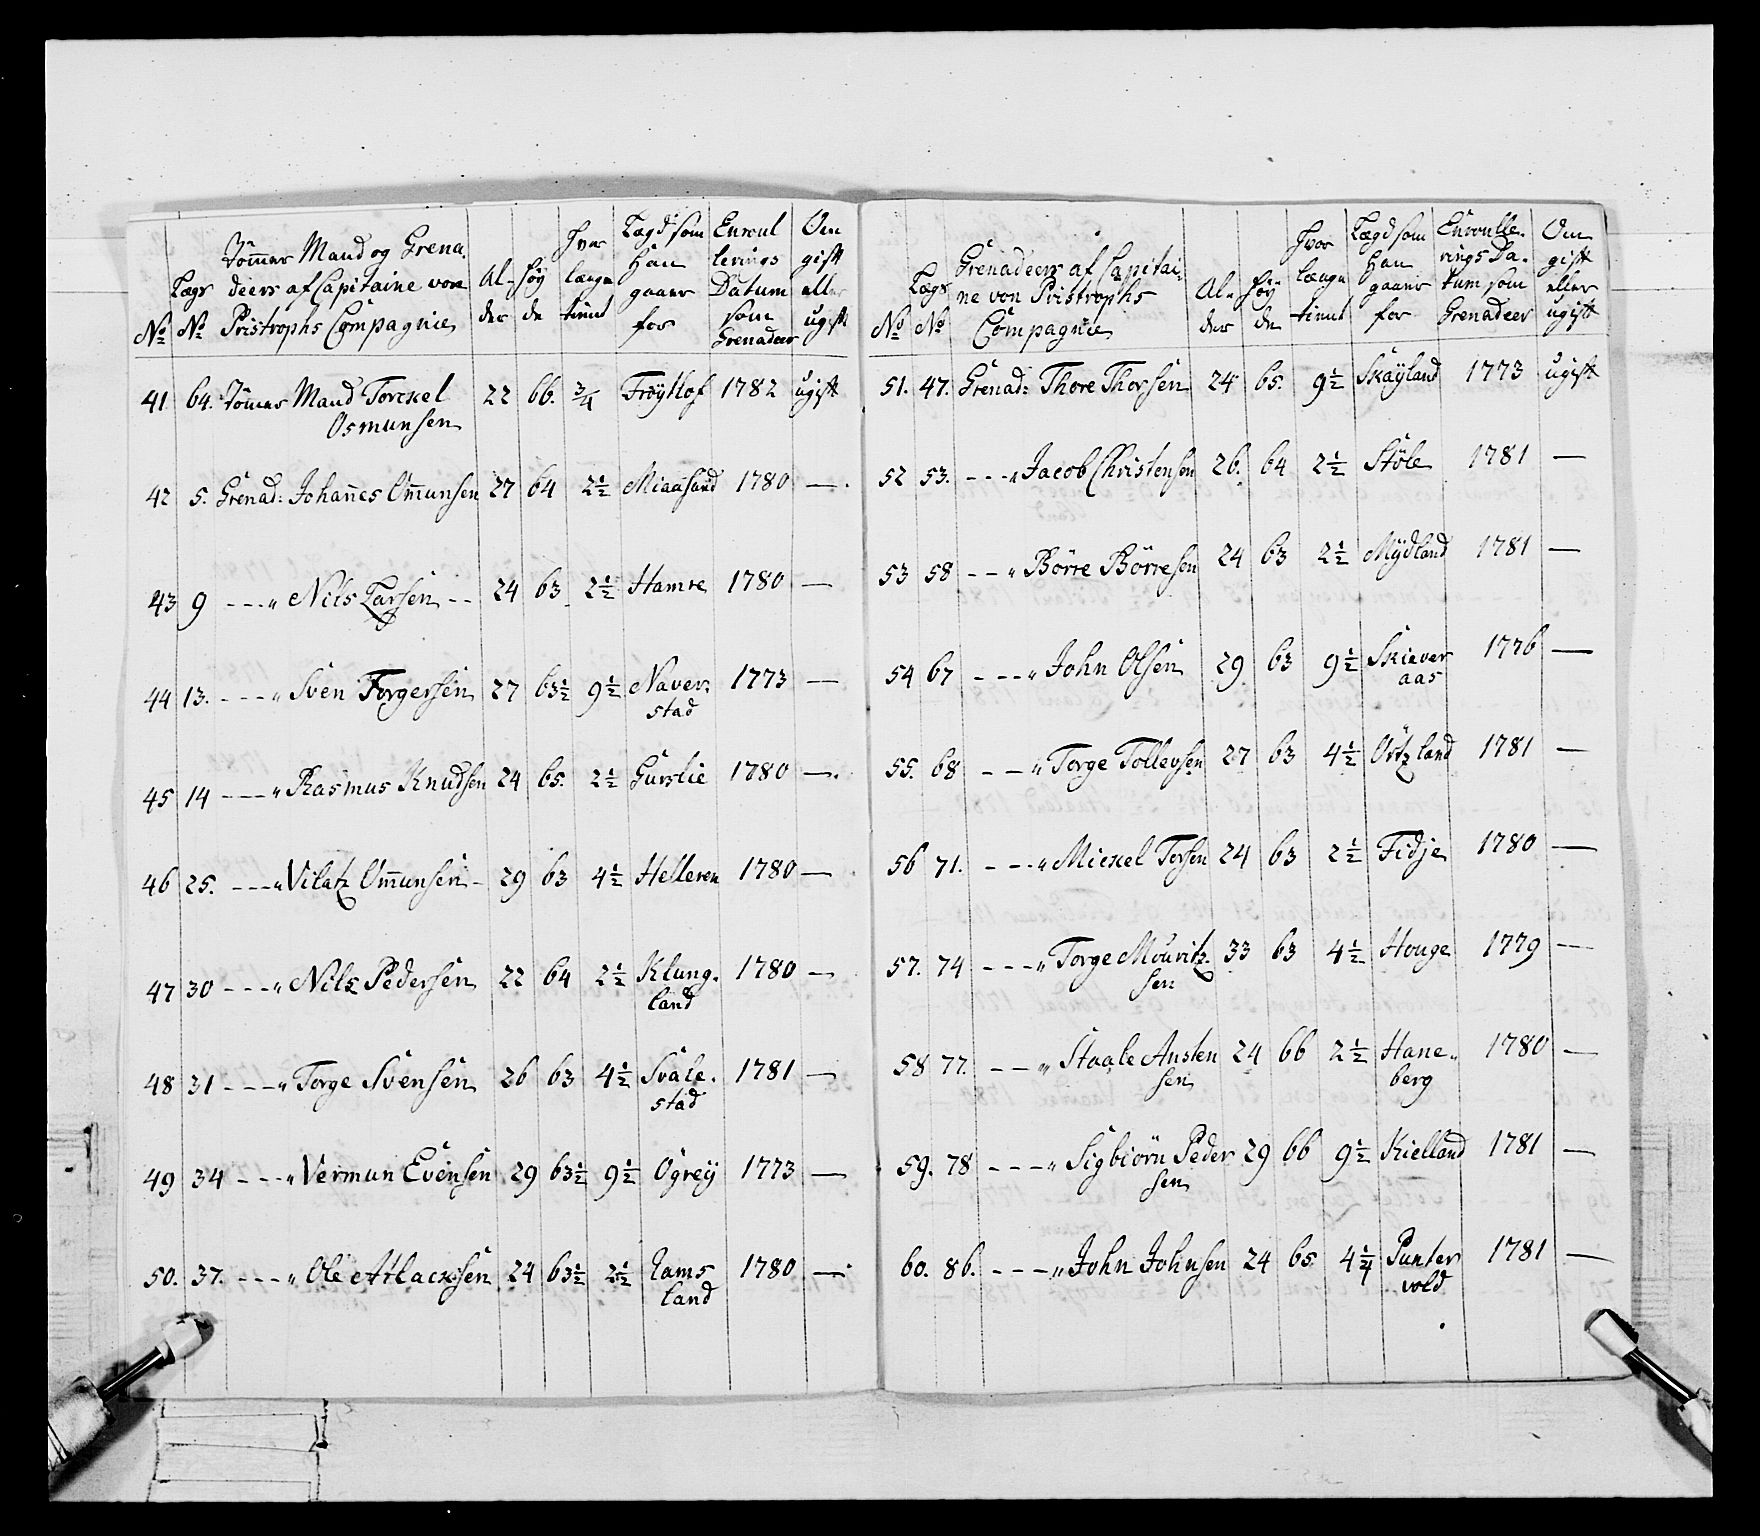 No | Lægs No | Tömmer Mand og Grenadeers af Capitaine von Pristrophs Compagnie | Alder | Höyde | Hvor længe tient | Lægd som Han gaaer for | Enroulerings Datum som Grenadeer | Om gift eller ugift
41 | 64. | Tömer Mand Torckel Osmunsen | 22 | 66. | 3/4 | Fröytlof | 1782 | ugift
42 | 5. | Grenad: Johannes Ommunsen | 27 | 64 | 2½ | Miaasund | 1780 | —
43 | 9 | ---„ Nils Larsen -- | 24 | 63 | 2½ | Hamre | 1780 | —
44 | 13. | ---„ Sven Torgersen | 27 | 63½ | 9½ | Naverstad | 1773 | —
45 | 14 | ---„ Rasmus Knudsen | 24 | 65. | 2½ | Gurslie | 1780 | —
46 | 25. | ---„ Vilatz Ommunsen - | 29 | 63 | 4½ | Helleren | 1780 | —
47 | 30 | ---„ Nils Pedersen | 22 | 64 | 2½ | Klungland | 1780 | —
48 | 31 | ---„ Torge Svensen | 26 | 63 | 4½ | Svalestad | 1781 | —
49 | 34 | ---„ Vermun Evensen | 29 | 63½ | 9½ | Ogreÿ | 1773 | —
50. | 37. | ---„ Ole Atlacksen | 24 | 63½ | 2½ | Lamsland | 1780 | —
No | Lægs No | Grenadeers af Capitaine von Pristrophs Compagnie | Alder | Höyde | Hvor længe tient | Lægd som Han gaaer for | Enroullerings Datum som Grenadeer | Om gift eller ugift
51. | 47. | Grenad: Thore Thorsen | 24 | 65. | 9½ | Skayland | 1773 | ugift
52 | 53. | ---„ Jacob Christensen | 26. | 64 | 2½ | Stöle | 1781 | —
53 | 58 | ---„ Börre Börresen | 24 | 63 | 2½ | Mÿdland | 1781 | —
54 | 67 | ---„ John Olsen | 29 | 63 | 9½ | Skieveraas | 1776 | —
55. | 68 | ---„ Torge Tollevsen | 27 | 63 | 4½ | Östzland | 1781 | —
56 | 71. | ---„ Mickel Torsen | 24 | 63 | 2½ | Fidje | 1780 | —
57. | 74 | ---„ Torge Mouritzsen | 33 | 63 | 4½ | Houge | 1779 | —
58 | 77. | ---„ Staale Anstensen | 24 | 66 | 2½ | Haneberg | 1780 | —
59. | 78 | ---„ Sigbiörn Pedersen | 29 | 66 | 9½ | Kielland | 1781 | —
60. | 86. | ---„ John Johnsen | 24 | 65 | 4¼ | Puntervold | 1781 | —